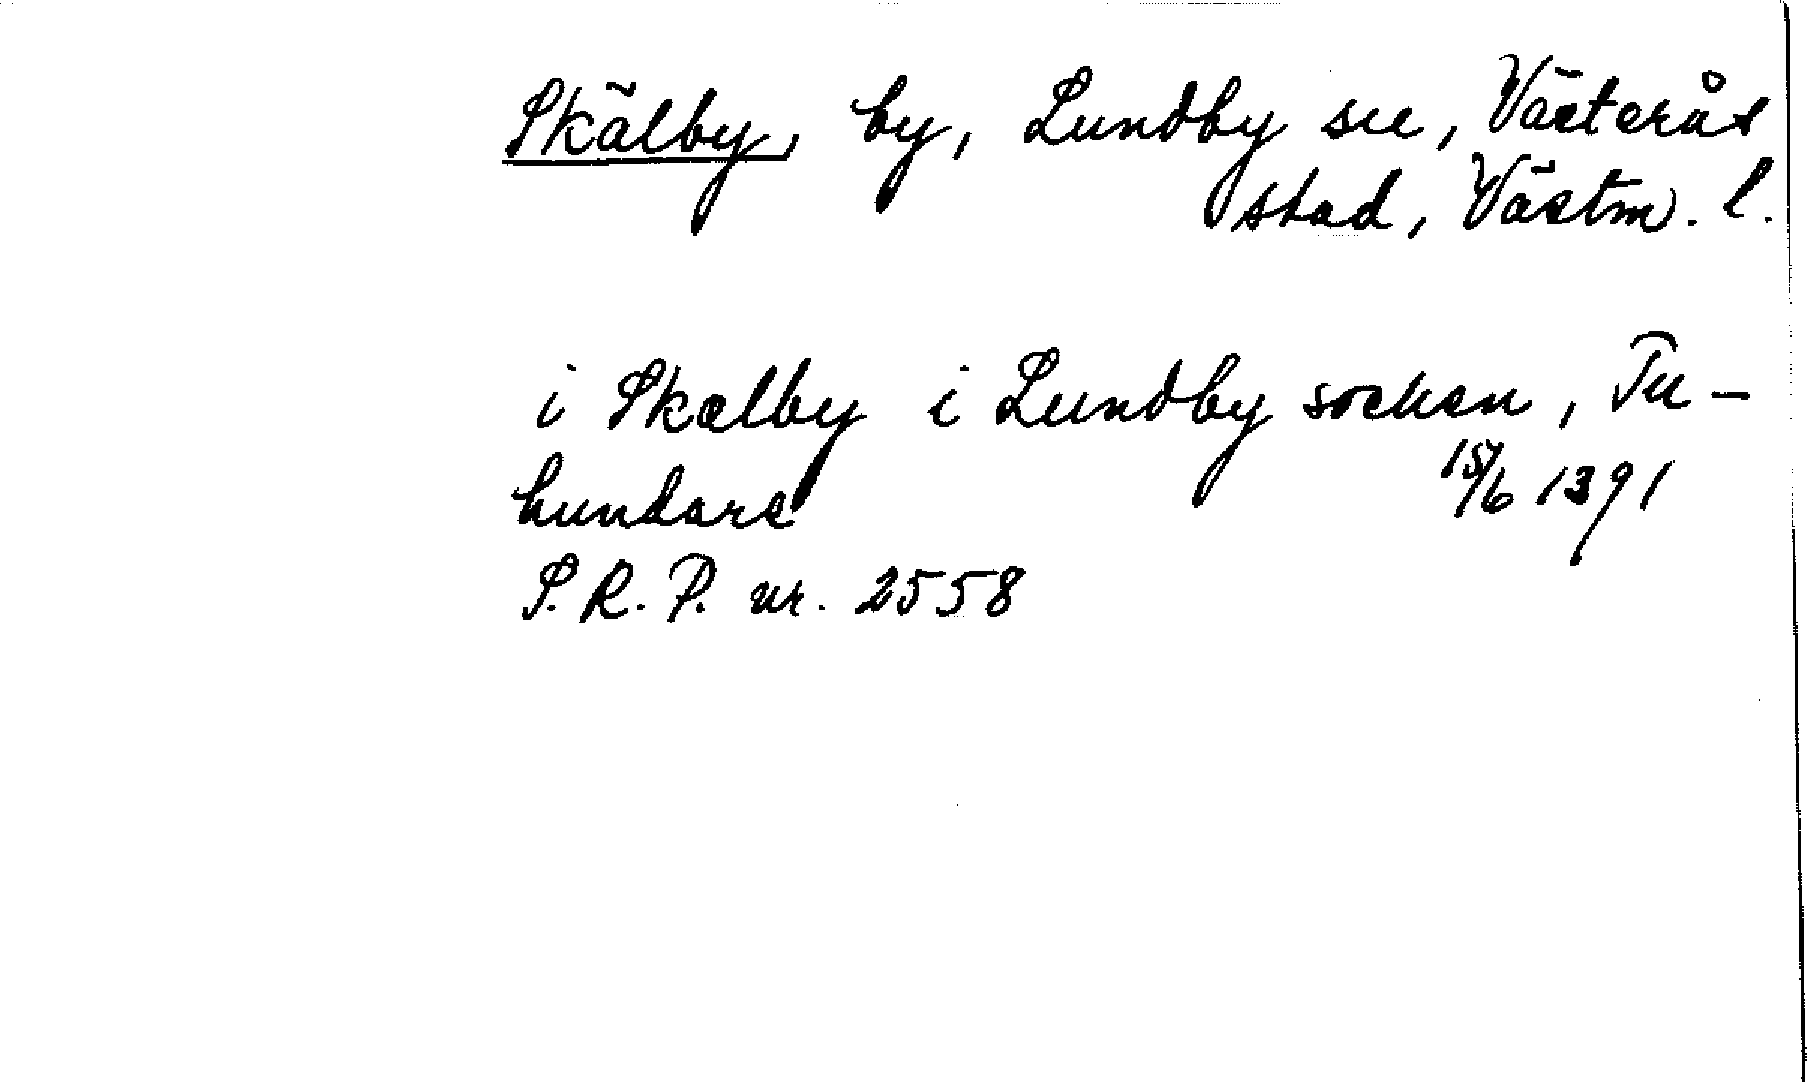 Skälby, by, Lundby sn, Västerås
stad, Västm. l.
i Skælby i Lundby socken, Tu-
hundare 15/6 1391
S.R.P. nr. 2558